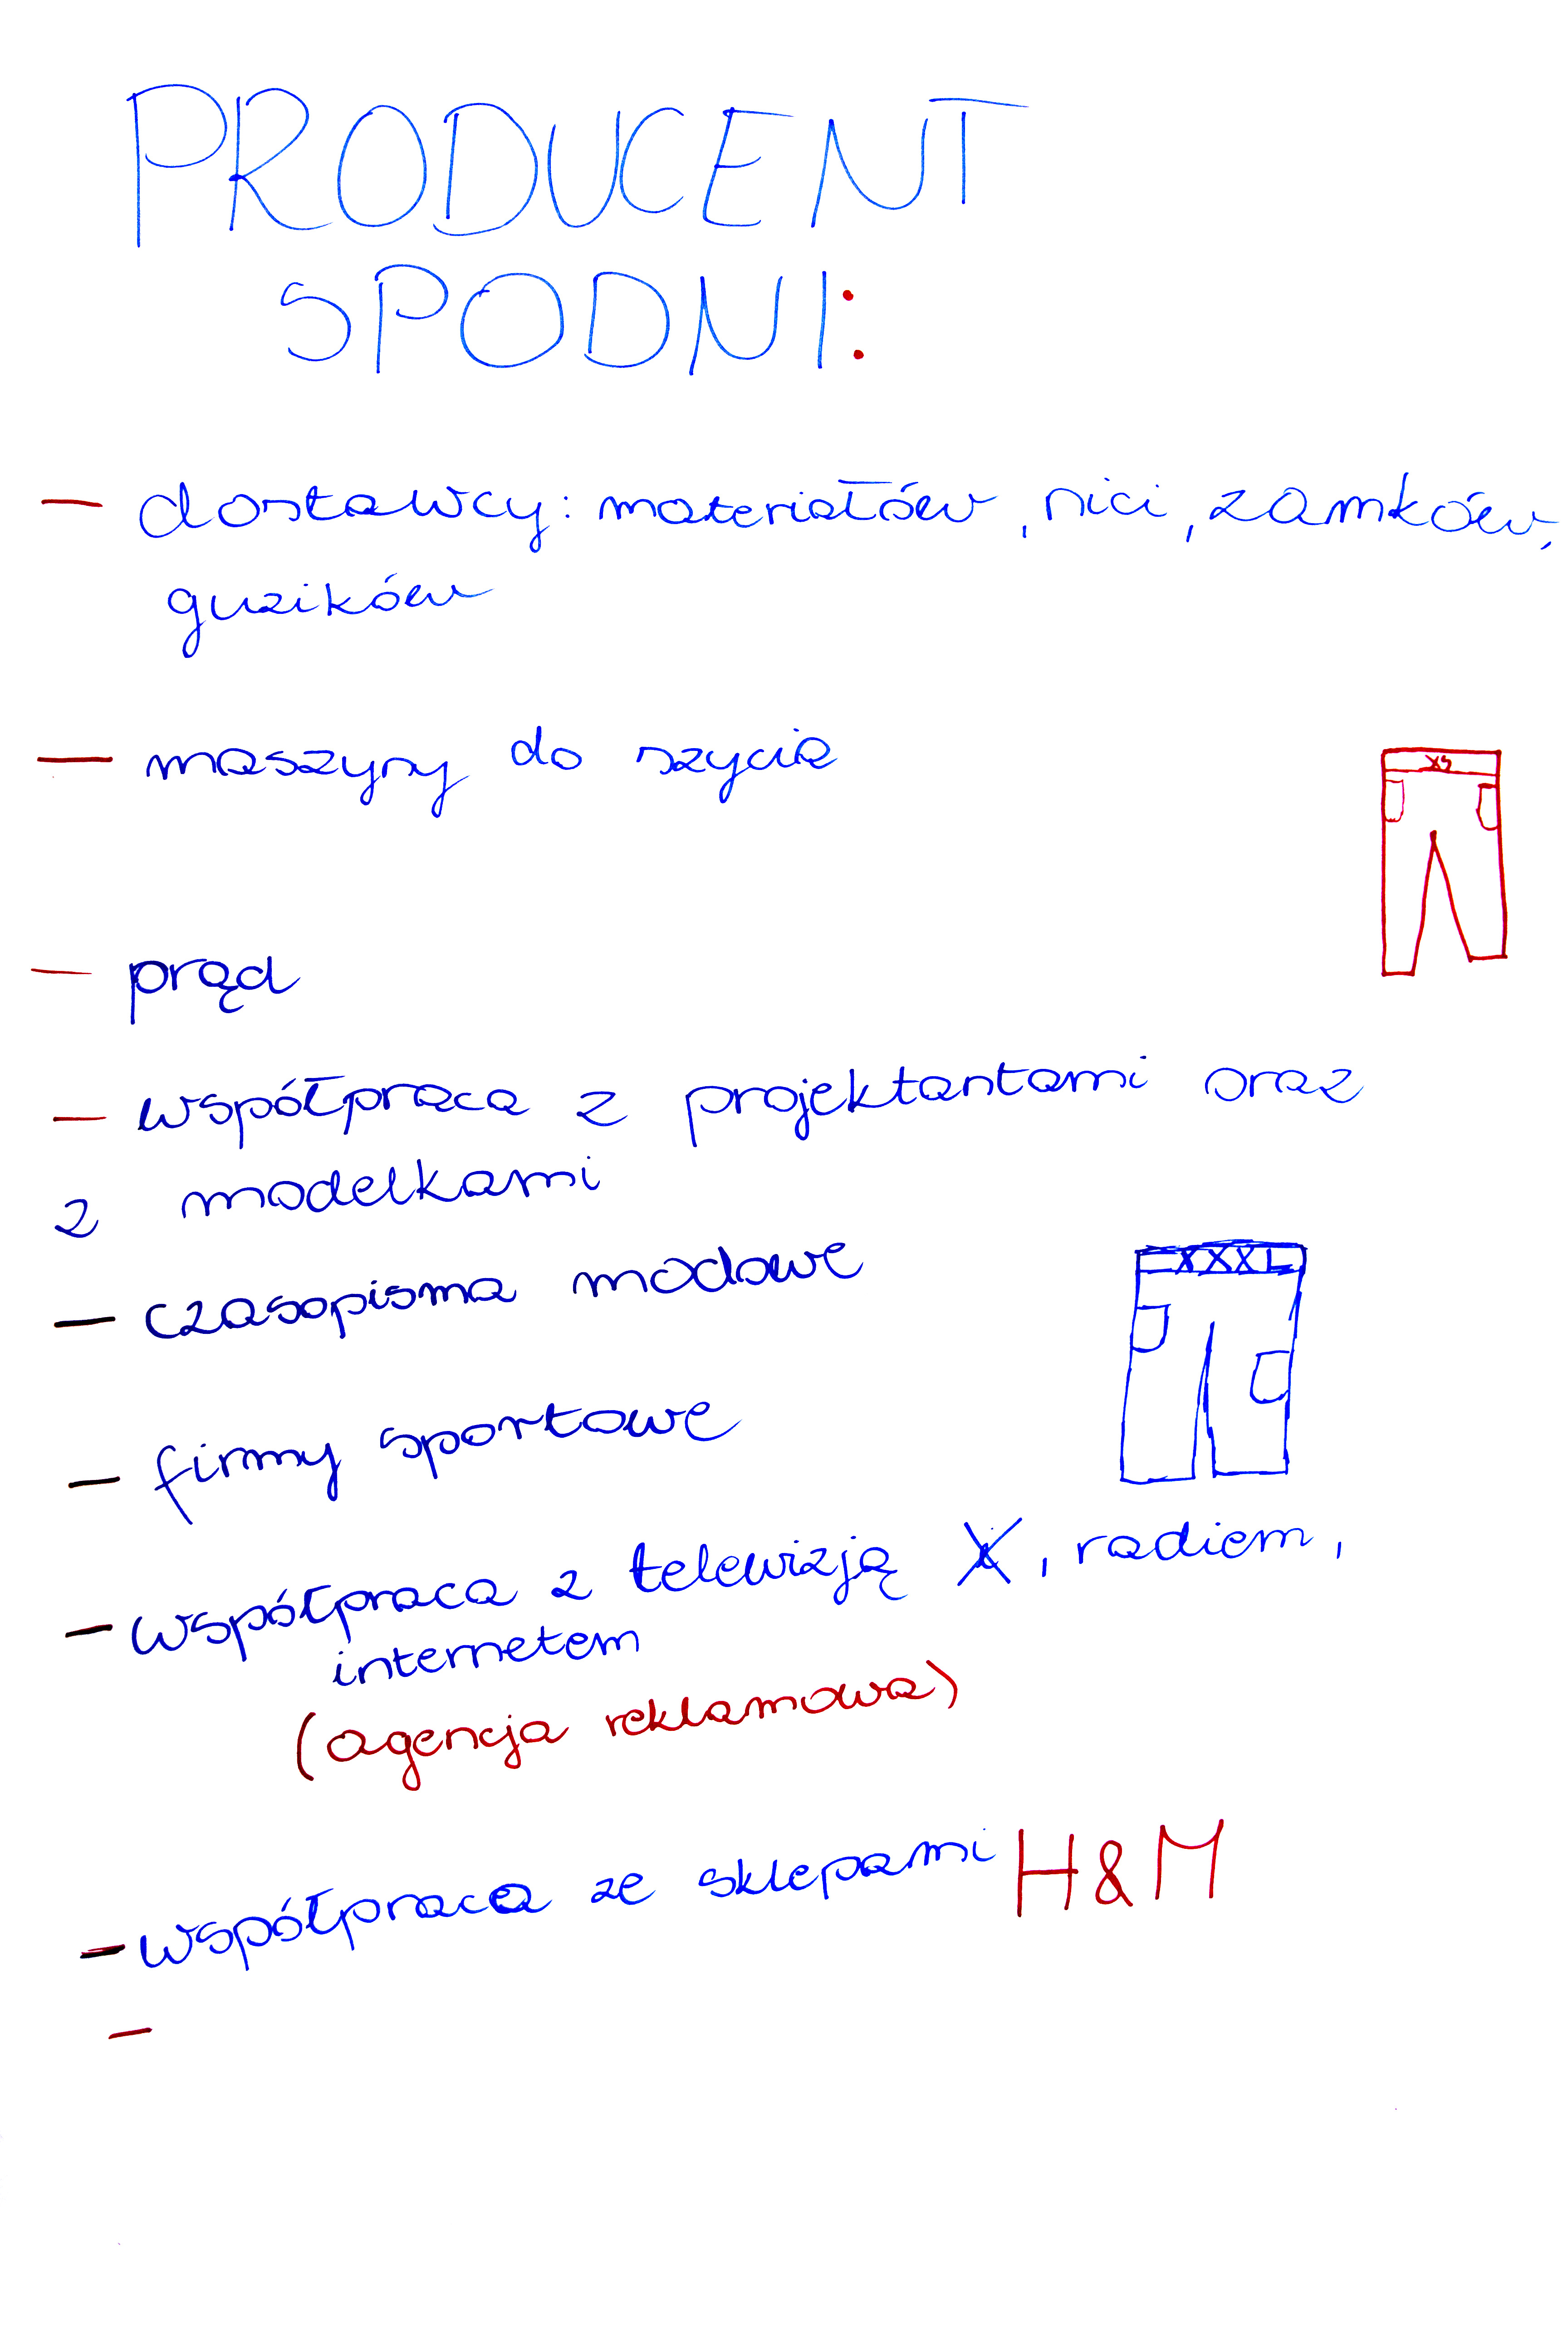 PRODUCENT
SPODNI:
— dostawcy: materiałów, nici, zamków,
guzików
— maszyny do szycia
XS
— prąd
— współpraca z projektantami oraz
z modelkami
— czasopisma modowe
XXXL
— firmy sportowe
— współpraca z telewizją, radiem,
internetem
(agencja reklamowa)
— współpraca ze sklepami H&M
—